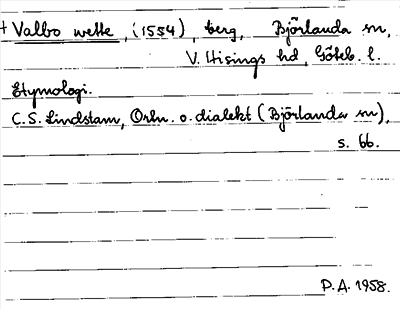 † Valbo wette, (1554), berg, Björlanda sn,
V. Hisings hd, Göteb. l.
Etymologi.
C.S. Lindstam, Ortn. o. dialekt (Björlanda sn),
s. 66.
P.A. 1958.